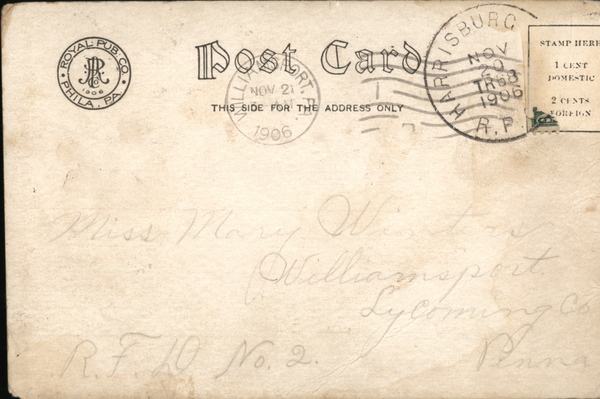 ROYAL PUB. CO.
PRC
1906
PHILA, PA.
Post Card
THIS SIDE FOR THE ADDRESS ONLY
WILLIAMSPORT, PA.
NOV 21
1906
HARRISBURG
NOV
20
TR 68
1906
R.P.
STAMP HERE
1 CENT
DOMESTIC
2 CENTS
FOREIGN
Miss Mary Winters
Williamsport
Lycoming Co
R.F.D No. 2. Penna